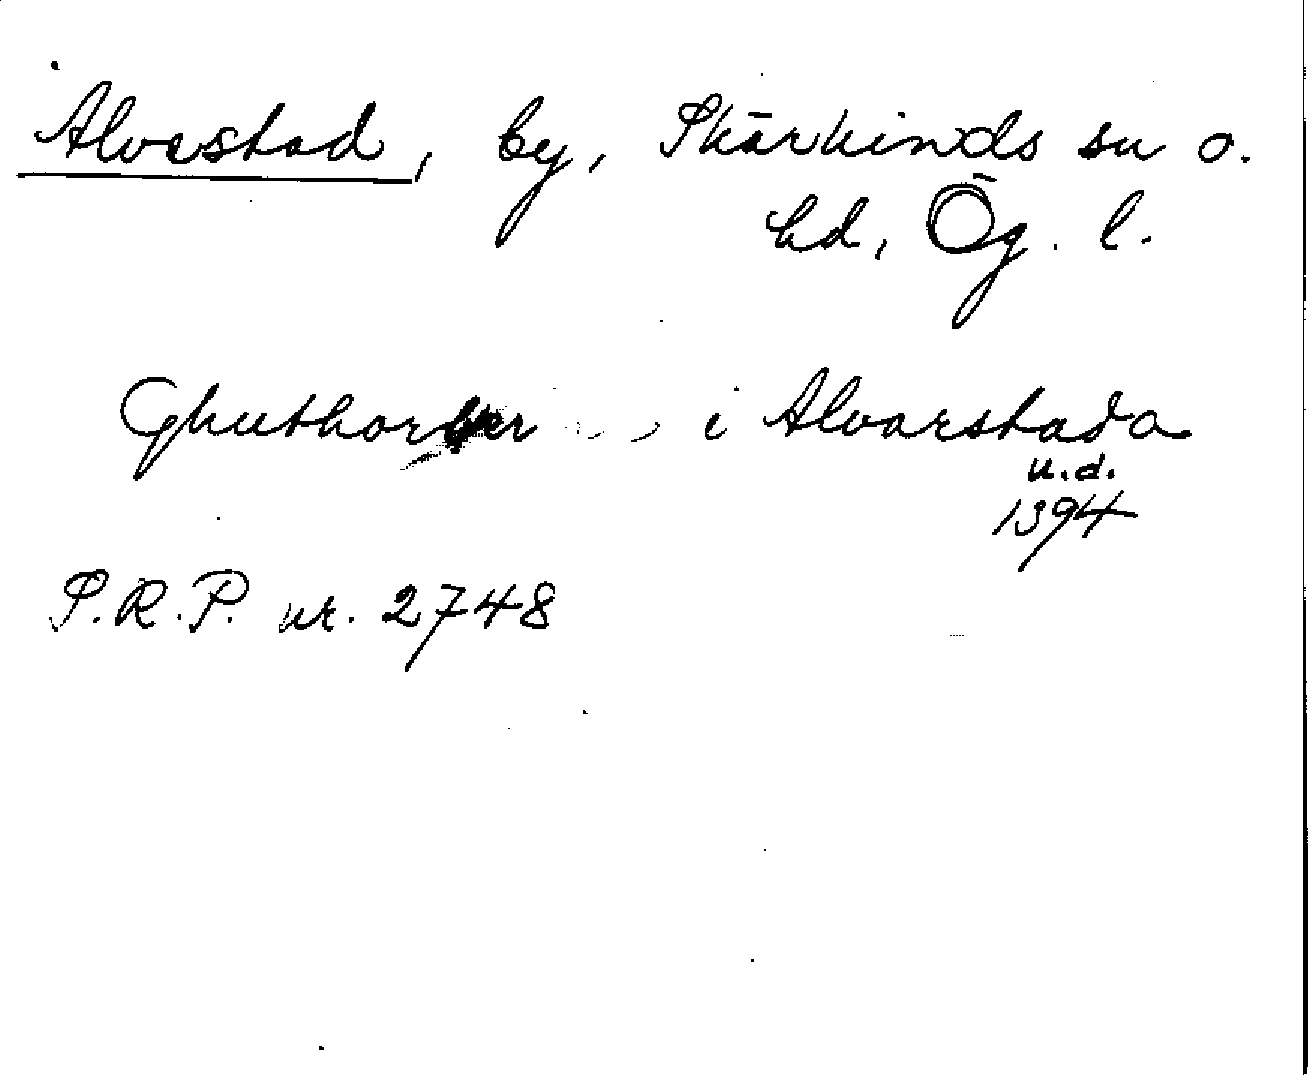 Alvestad, by, Skärkinds sn o.
hd, Ög. l.
i Alvarstada
u.d.
1394
P.R.P. nr. 2748